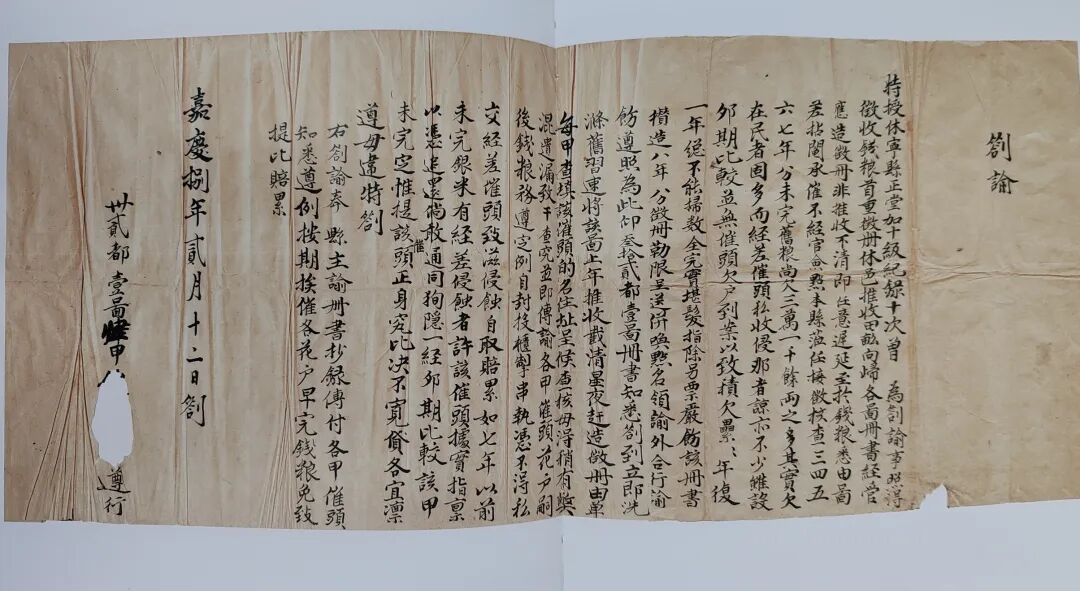 劄諭
特授休寧縣正堂加十級紀錄十次曾 為劄諭事照得
徵收錢粮首重徵冊休邑推收田畝向歸各啚冊書經管
應造徵冊非推收不清即任意遲延至扵錢粮悉由啚
差拈鬮承催不經官僉點本縣蒞任接徵核查三四五
六七年分未完舊粮尚欠三萬一千餘両之多其實欠
在民者固多而經差催頭私收侵那者諒亦不少雖設
夘期比較並無催頭欠户到案以致積欠纍纍年復
一年絕不能掃数全完實堪髮指除另票嚴飭該冊書
攅造八年分徵冊勒限呈送併喚點名領諭外合行諭
飭遵照為此仰叁拾貳都壹啚冊書知悉劄到立即洗
滌舊習速將該啚上年推收截清星夜赶造徵冊由单
每甲查填該催頭的名住址呈候查核毋得稍有弊
混遺漏致干查究并即傳諭各甲催頭花户嗣
後錢粮務遵定例自封投櫃掣串執憑不得私
交經差催頭致滋侵蝕自取賠累如七年以前
未完銀米有經差侵蝕者許該催頭據實指禀
以憑追還倘敢通同狥隱一經夘期比較該甲
未完定惟提該催頭正身究比决不寬貸各宜凛
遵毋違特劄
右劄諭奉 縣主諭冊書抄錄傳付各甲催頭
知悉遵例按期挨催各花户早完錢粮免致
提比賠累
嘉慶捌年貳月十二日劄
卅貳都壹啚 甲 遵行